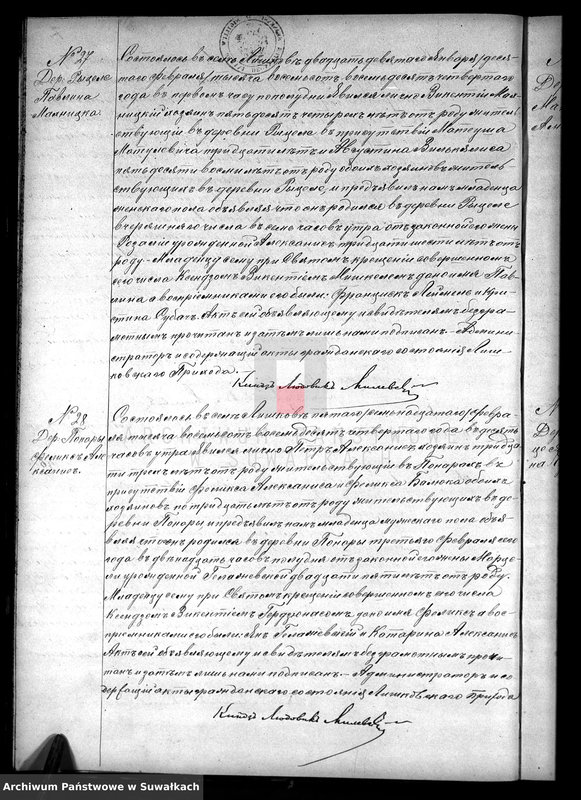 № 27
Дер. Рыцеле
Павлина
Маляицка
Состоялось въ селѣ Лишковъ двадцать девятаго Января (деся-
таго февраля) тысяча восемьсотъ восемьдесятъ четвертаго
года въ первомъ часу пополудни. Явился лично Викентій
лѣтъ отъ роду житель-
ствующій въ деревни Рыцеле въ присутствіи Матеуша
Матулевича тридцати лѣтъ и Августина
пятьдесяти восьми лѣтъ отъ роду обоихъ хозяевъ житель
ствующихъ въ деревни Рыцеле, и предъявилъ намъ младенца
женскаго пола объявляя что онъ родился въ деревни Рыцеле
вчерашняго числа въ семь часовъ утра отъ законной его жены
Розаліи урожденной Алексаничъ тридцати шести лѣтъ отъ
роду. Младенцу сему при Святомъ крещеніи совершенномъ
сего числа Ксендзомъ Викентіемъ дано имя Пав-
лина, а воспріемниками его были: Францискъ и Кри-
стина Субачъ. Актъ сей объявляющему и свидѣтелямъ безгра-
мотнымъ прочитанъ и затѣмъ лишь нами подписанъ. Админи-
страторъ и содержащій акты гражданскаго состоянія Лиш-
ковскаго Прихода.
Ксендзъ Людовикъ
№ 28
Дер. Поноры
Феликсъ Але-
ксаничъ.
Состоялось въ селѣ Лишковъ пятаго (семнадцатаго) Февра-
ля тысяча восемьсотъ восемьдесятъ четвертаго года въ десять
часовъ утра. Явился лично Петръ Алексаничъ хозяинъ тридца-
ти трехъ лѣтъ отъ роду жительствующій въ Понарахъ въ
присутствіи Феликса Алексаниса и Феликса обоихъ
хозяиновъ по тридцать лѣтъ отъ роду жительствующихъ въ де-
ревни Поноры и предъявилъ намъ младенца мужескаго пола объя-
вляя что онъ родился въ деревни Поноры третьяго Февраля сего
года въ двѣнадцать часовъ полудня отъ законной его жены Марце-
ли урожденной двадцати пяти лѣтъ отъ роду.
Младенцу сему при Святомъ крещеніи совершенномъ сего числа
Ксендзомъ Викентіемъ дано имя Феликсъ а вос-
пріемниками его были: и Катарина Алексаничъ
Актъ сей объявляющему и свидѣтелямъ безграмотнымъ прочи-
танъ и затѣмъ лишь нами подписанъ. Администраторъ и со
держащій акты гражданскаго состоянія Лишковскаго Прихода
Ксендзъ Людовикъ
Archiwum Państwowe w Suwałkach